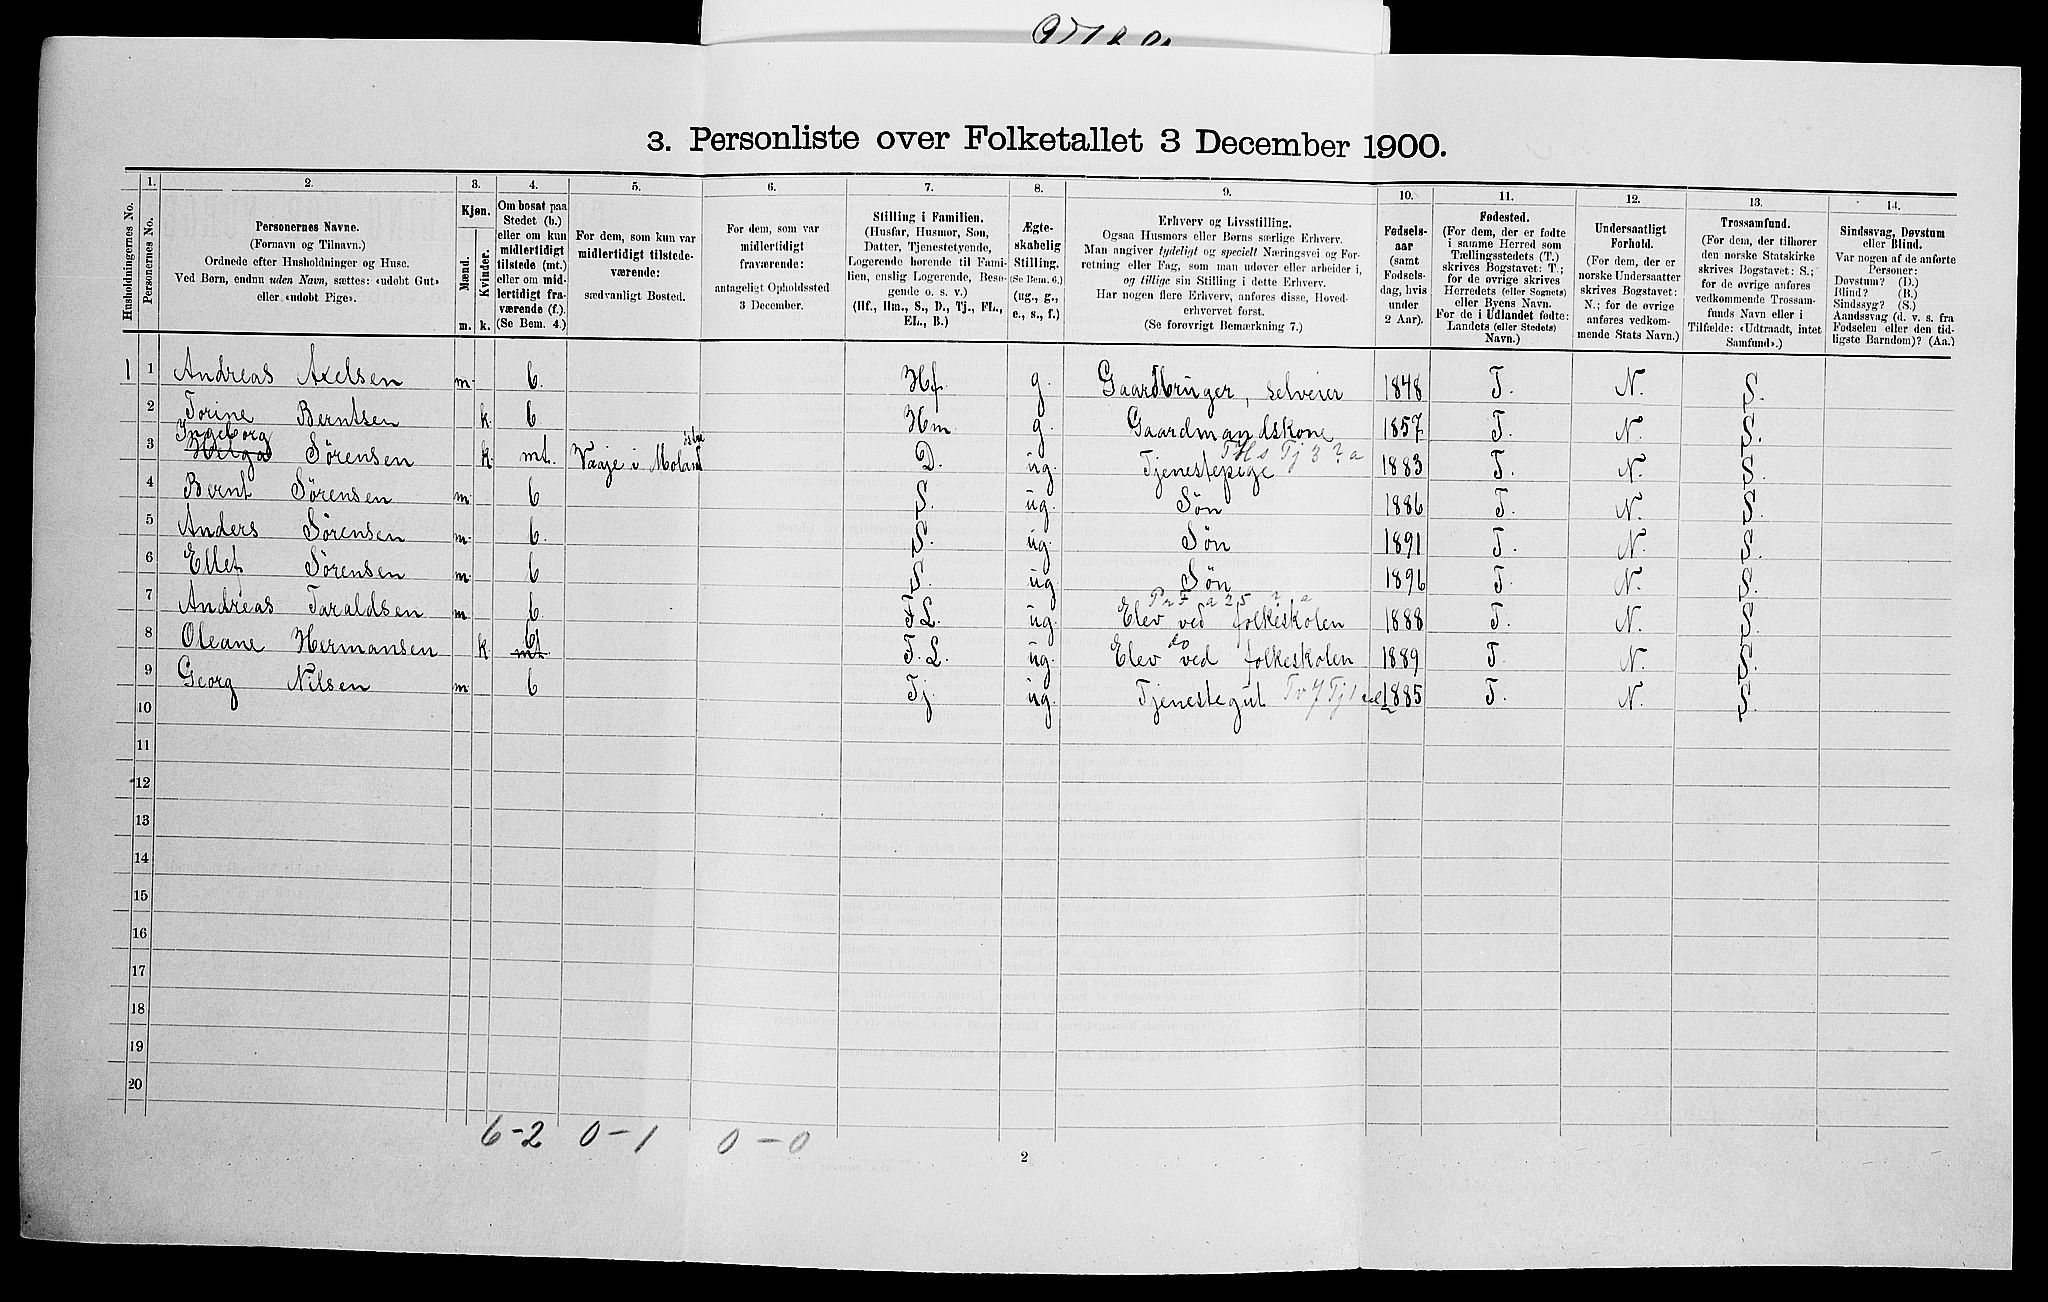 3. Personliste over Folketallet 3 December 1900.
1. 2. 3. 4. 5. 6. 7. 8. 9. 10. 11. 12. 13. 14.
Husholdningernes No.
Personernes No.
Personernes Navne.
(Fornavn og Tilnavn.)
Ordnede efter Husholdninger og Huse.
Ved Børn, endnu uden Navn, sættes: «udøbt Gut»
eller «udøbt Pige».
Kjøn.
Mænd.
Kvinder.
m. k.
Om bosat paa
Stedet (b.)
eller om kun
midlertidigt
tilstede (mt.)
eller om mid-
lertidigt fra-
værende (f.).
(Se Bem. 4.)
For dem, som kun var
midlertidigt tilstede-
værende:
sædvanligt Bosted.
For dem, som var
midlertidigt
fraværende:
antageligt Opholdssted
3 December.
Stilling i Familien.
(Husfar, Husmor, Søn,
Datter, Tjenestetyende,
Logerende hørende til Fami-
lien, enslig Logerende, Besø-
gende o. s. v.)
(Hf., Hm., S., D., Tj., FL.,
EL., B.)
Ægte-
skabelig
Stilling.
(Se Bem. 6.)
(ug., g.,
e., s., f.)
Erhverv og Livsstilling.
Ogsaa Husmors eller Børns særlige Erhverv.
Man angiver tydeligt og specielt Næringsvei og For-
retning eller Fag, som man udøver eller arbeider i,
og tillige sin Stilling i dette Erhverv.
Har nogen flere Erhverv, anføres disse, Hoved-
erhvervet først.
(Se forøvrigt Bemærkning 7.)
Fødsels-
aar
(samt
Fødsels-
dag, hvis
under
2 Aar).
Fødested.
(For dem, der er fødte
i samme Herred som
Tællingsstedets (T.)
skrives Bogstavet: T.;
for de øvrige skrives
Herredets (eller Sognets)
eller Byens Navn.
For de i Udlandet fødte:
Landets (eller Stedets)
Navn.)
Undersaatligt
Forhold.
(For dem, der er
norske Undersaatter
skrives Bogstavet:
N.; for de øvrige
anføres vedkom-
mende Stats Navn.)
Trossamfund.
(For dem, der tilhører
den norske Statskirke
skrives Bogstavet: S.;
for de øvrige anføres
vedkommende Trossam-
funds Navn eller i
Tilfælde: «Udtraadt, intet
Samfund».)
Sindssvag, Døvstum
eller Blind.
Var nogen af de anførte
Personer:
Døvstum? (D.)
Blind? (B.)
Sindssyg? (S.)
Aandssvag (d. v. s. fra
Fødselen eller den tid-
ligste Barndom)? (Aa.)
1 1 Andreas Axelsen m. b. Hf. g. Gaardbruger, selveier 1848 T. N. S.
2 Torine Berntsen k. b Hm. g. Gaardmandskone 1857 T. N. S.
Ingeborg
3 Helga Sørensen k. mt. Vaaje i Moland D. ug. Tjenestepige 1883 T. N. S.
4 Bernt Sørensen m. b S. ug. Søn 1886 T. N. S.
5 Anders Sørensen m. b. S. ug. Søn 1891 T. N. S.
6 Ellef Sørensen m. b S. ug Søn 1896 T. N. S.
7 Andreas Taraldsen m. b F.L. ug. Elev ved folkeskolen 1888 T. N. S.
8 Oleane Hermansen k. mt b F.L. ug. Elev ved folkeskolen do 1889 T. N. S.
9 Georg Nilsen m. b Tj. ug. Tjenestegut 1885 T. N. S.
10
11
12
13
14
15
16
17
18
19
20
6-2 0-1 0-0
2